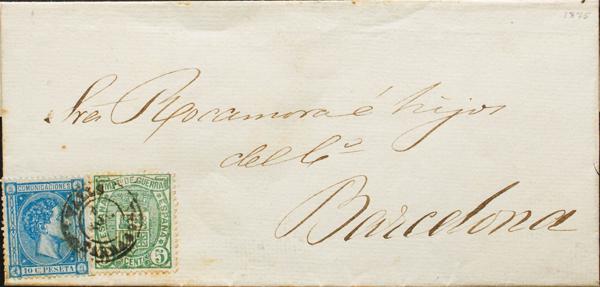 1875
Sres Rocamora é hijos
del Cº
Barcelona
COMUNICACIONES
10 CS PESETA
IMPTO DE GUERRA
ESPAÑA
5 CENTS 5